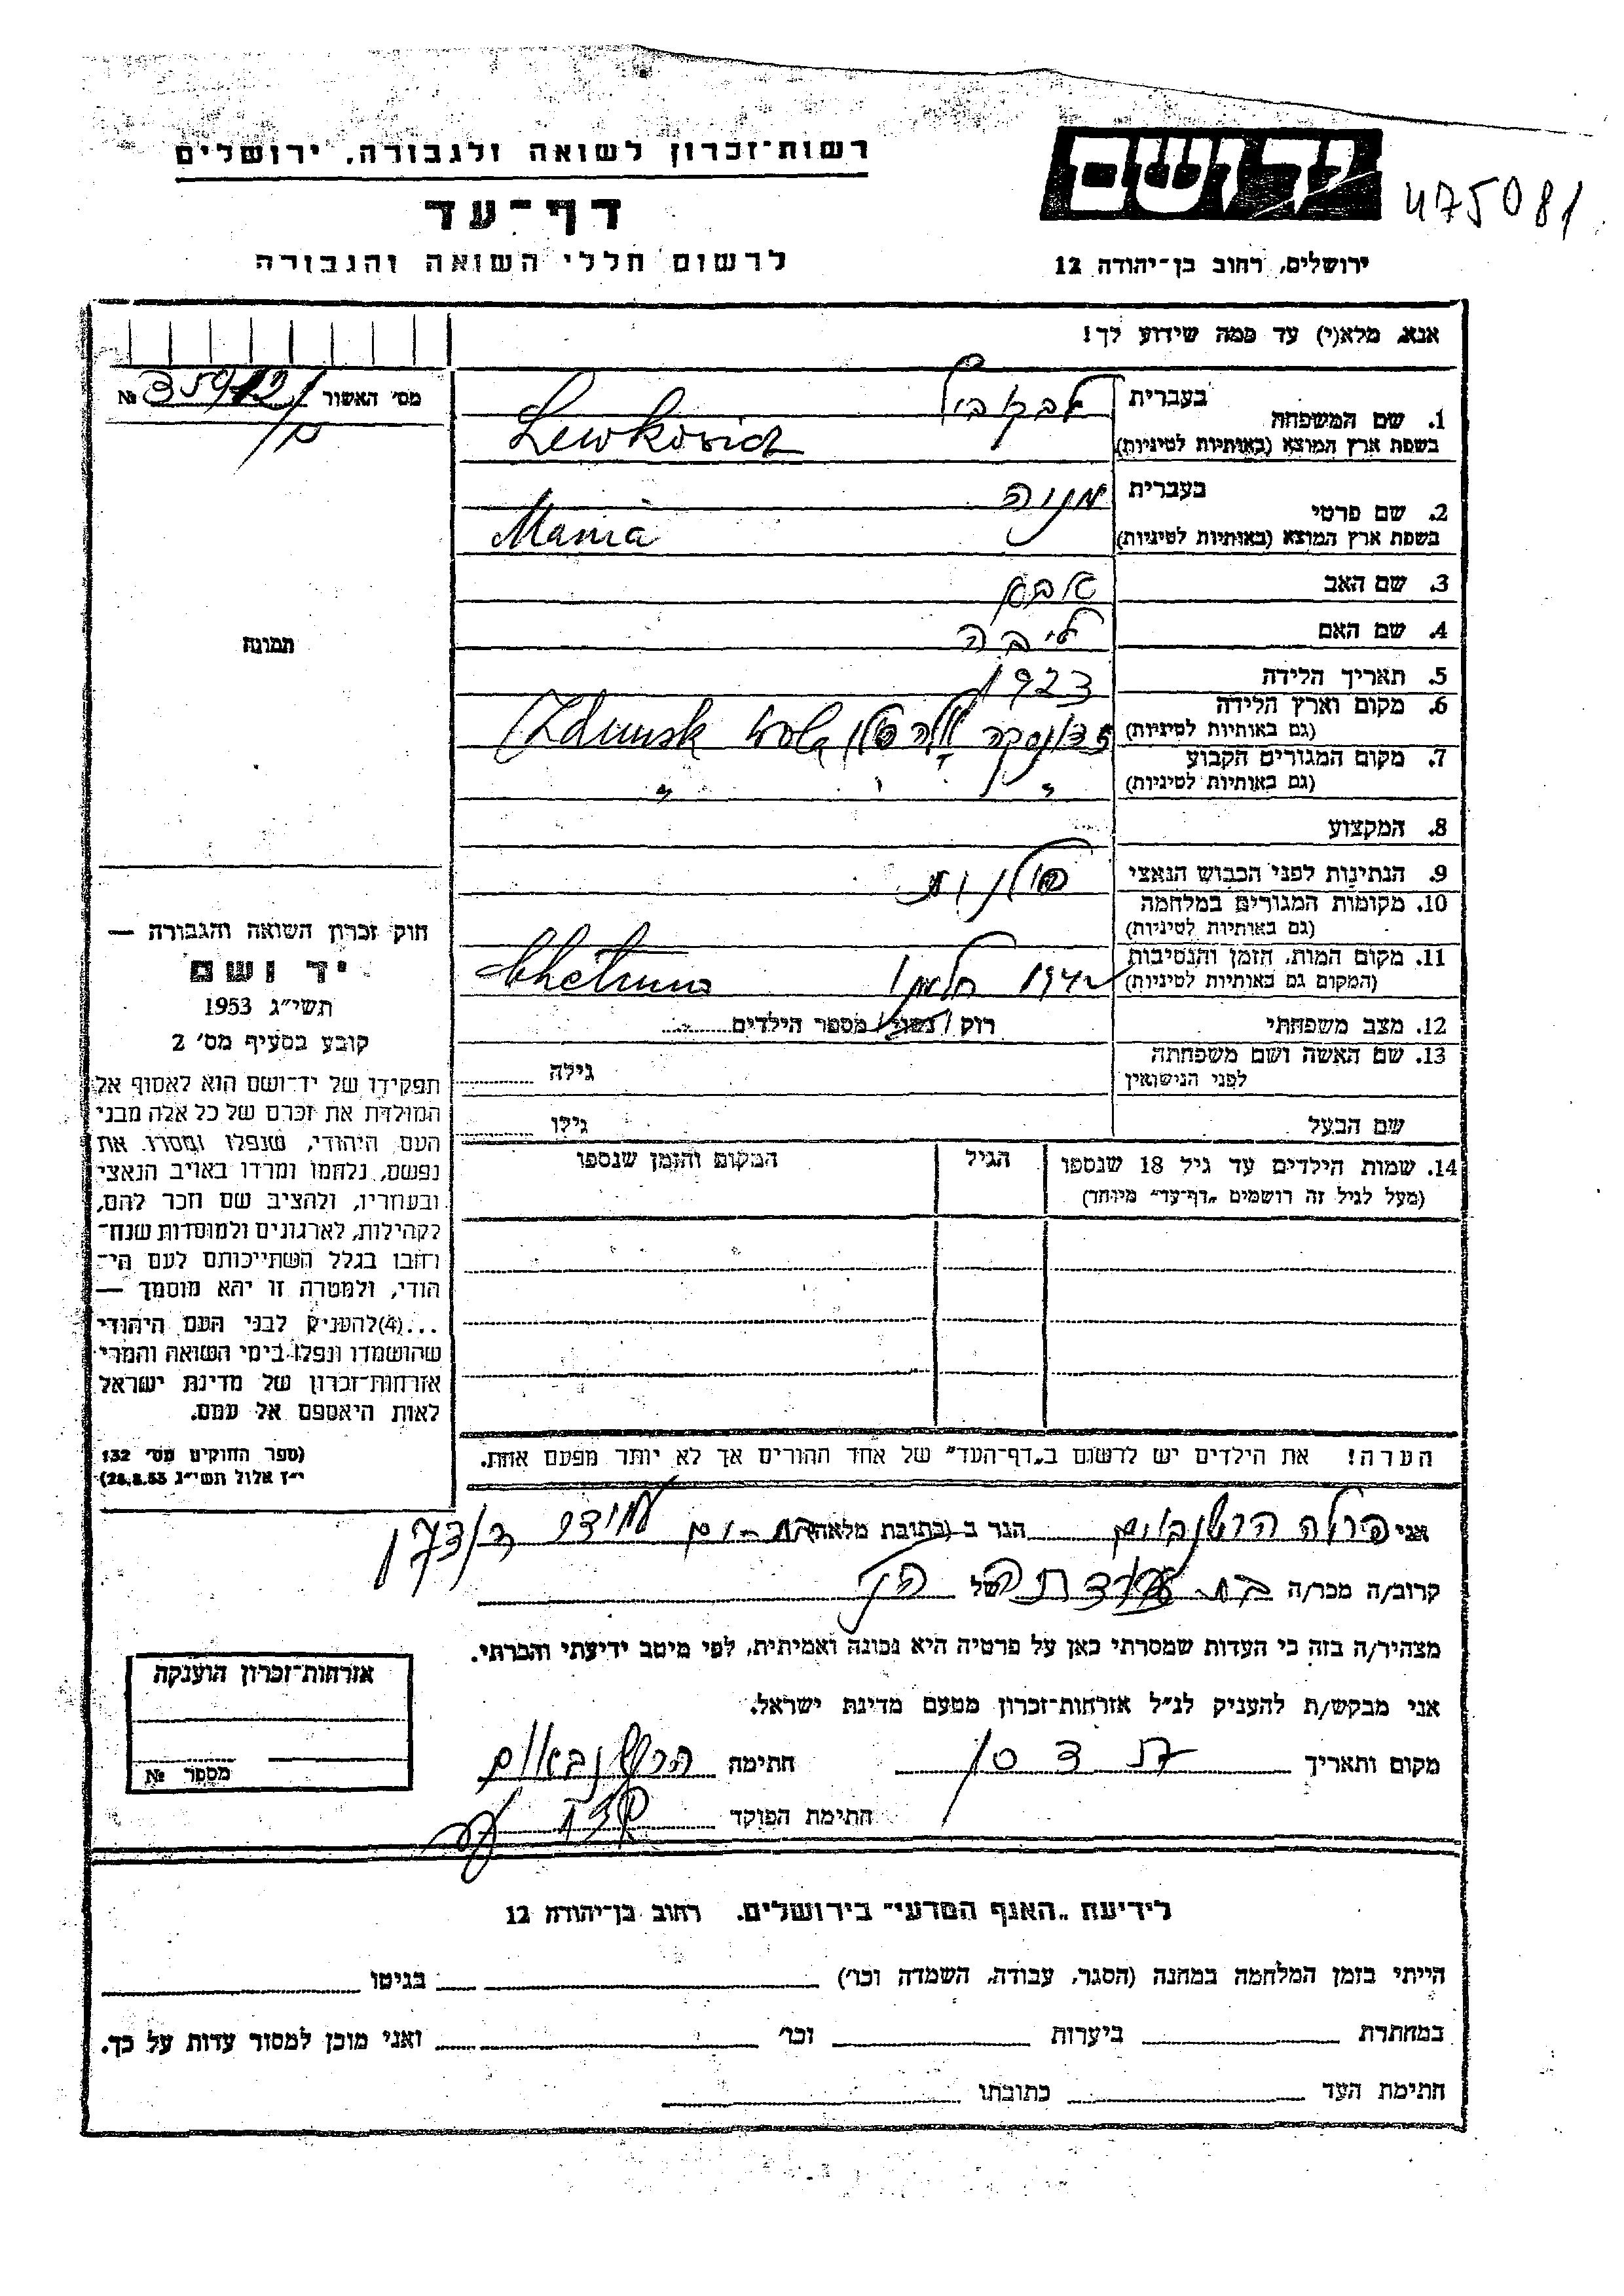 רשות־זכרון לשואה ולגבורה, ירושלים
דף־עד
לרשום חללי השואה והגבורה
ידושם
475081
ירושלים, רחוב בן־יהודה 12
אנא, מלא(י) עד כמה שידוע לך!
מס' האשור №
1. שם המשפחה
בעברית לבקוביץ
בשפת ארץ המוצא (באותיות לטיניות) Lewkovicz
2. שם פרטי
בעברית מניה
בשפת ארץ המוצא (באותיות לטיניות) Mania
3. שם האב אבא
4. שם האם ליבה
5. תאריך הלידה 1923
6. מקום וארץ הלידה
(גם באותיות לטיניות) זדונסקה וולה פולין Zdunsk Wola
7. מקום המגורים הקבוע
(גם באותיות לטיניות) " " "
8. המקצוע
9. הנתינות לפני הכבוש הנאצי פולנית
10. מקומות המגורים במלחמה
(גם באותיות לטיניות)
11. מקום המות, הזמן והנסיבות
(המקום גם באותיות לטיניות) 1942 חלמנו Chelmno
12. מצב משפחתי רוק / נשוי / מספר הילדים
13. שם האשה ושם משפחתה
לפני הנישואין גילה
שם הבעל גילו
14. שמות הילדים עד גיל 18 שנספו הגיל המקום והזמן שנספו
(מעל לגיל זה רושמים „דף־עד" מיוחד)
הערה! את הילדים יש לרשום ב„דף־העד" של אחד ההורים אך לא יותר מפעם אחת.
תמונה
חוק זכרון השואה והגבורה —
יד ושם
תשי"ג 1953
קובע בסעיף מס' 2
תפקידו של יד־ושם הוא לאסוף אל
המולדת את זכרם של כל אלה מבני
העם היהודי, שנפלו ומסרו את
נפשם, נלחמו ומרדו באויב הנאצי
ובעוזריו, ולהציב שם וזכר להם,
לקהילות, לארגונים ולמוסדות שנח־
רובו בגלל השתייכותם לעם הי־
הודי, ולמטרה זו יהא מוסמך —
...(4)להעניק לבני העם היהודי
שהושמדו ונפלו בימי השואה והמרי
אזרחות־זכרון של מדינת ישראל
לאות היאספם אל עמם.
(ספר החוקים מס' 132
י"ז אלול תשי"ג 28.8.53)
אני פרלה הרשנבאום הגר ב (כתובת מלאה) בת-ים
קרוב/ה מכר/ה בת דודתה של
מצהיר/ה בזה כי העדות שמסרתי כאן על פרטיה היא נכונה ואמיתית, לפי מיטב ידיעתי והכרתי.
אני מבקש/ת להעניק לנ"ל אזרחות־זכרון מטעם מדינת ישראל.
מקום ותאריך חתימה הרשנבאום
חתימת הפוקד
אזרחות־זכרון הוענקה
מספר №
לידיעת „האגף המדעי" בירושלים, רחוב בן־יהודה 12
הייתי בזמן המלחמה במחנה (הסגר, עבודה, השמדה וכו') בגיטו
במחתרת ביערות וכו' ואני מוכן למסור עדות על כך.
חתימת העד כתובתו